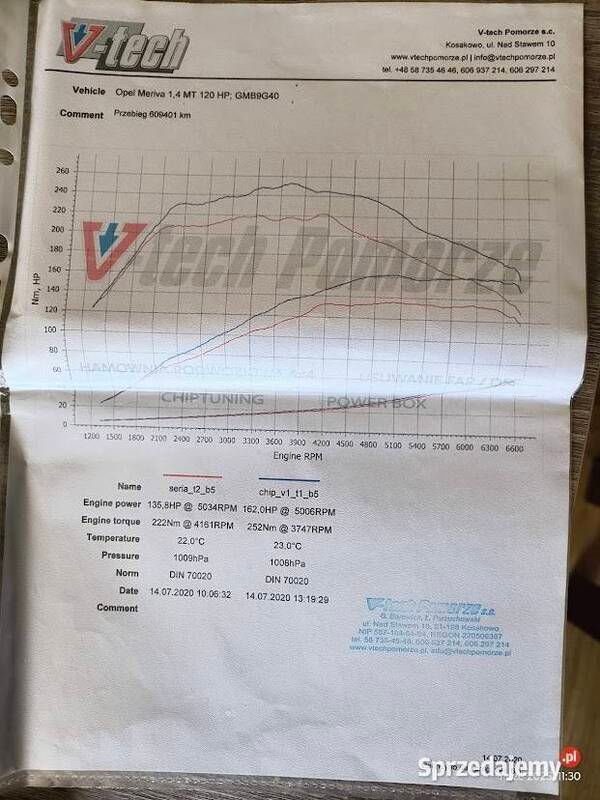 V-tech
V-tech Pomorze s.c.
Kosakowo, ul. Nad Stawem 10
www.vtechpomorze.pl | info@vtechpomorze.pl
tel. +48 58 735 46 46, 606 937 214, 606 297 214
Vehicle Opel Meriva 1,4 MT 120 HP; GMB9G40
Comment Przebieg 609401 km
Nm, HP
260
240
220
200
180
160
140
120
100
80
60
20
0
V-tech Pomorze
CHIPTUNING POWER BOX
1200 1500 1800 2100 2400 2700 3000 3300 3600 3900 4200 4500 4800 5100 5400 5700 6000 6300 6600
Engine RPM
Name seria_t2_b5 chip_v1_t1_b5
Engine power 135,8HP @ 5034RPM 162,0HP @ 5006RPM
Engine torque 222Nm @ 4161RPM 252Nm @ 3747RPM
Temperature 22,0°C 23,0°C
Pressure 1009hPa 1008hPa
Norm DIN 70020 DIN 70020
Date 14.07.2020 10:06:32 14.07.2020 13:19:29
Comment
V-tech Pomorze s.c.
ul. Nad Stawem 10, 81-198 Kosakowo
tel. 58 735-46-46, 606 937 214, 606 297 214
www.vtechpomorze.pl, info@vtechpomorze.pl
14.07.2020
Sprzedajemy.pl
11:30